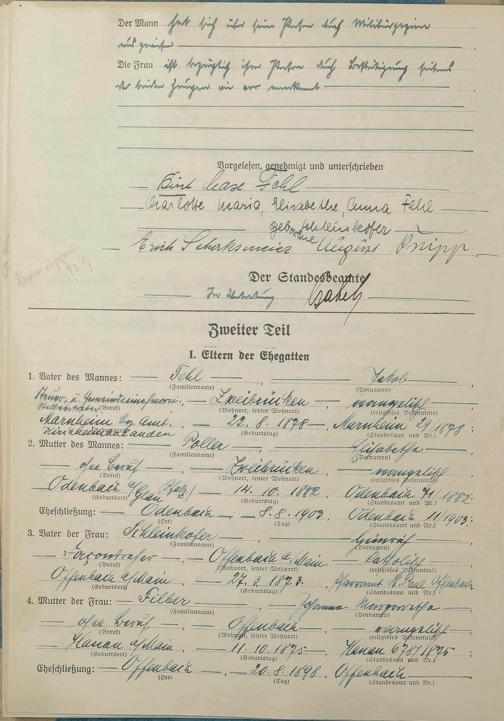 Der Mann hat sich über seine Person durch Militärpapiere
ausgewiesen
Die Frau ist bezüglich ihrer Person durch Bestätigung seitens
der beiden Zeugen anerkannt
Vorgelesen, genehmigt und unterschrieben
Fehl
Charlotte Maria, Elisabethe, Anna Fehl
geborene Schleinkofer
Erich August Knipp
Der Standesbeamte
In Vertretung
Zweiter Teil
I. Eltern der Ehegatten
1. Vater des Mannes: Fehl, Jakob
(Familienname) (Vornamen)
Zweibrücken, evangelisch
(Beruf) (Wohnort, letzter Wohnort) (religiöses Bekenntnis)
Marnheim 22.8.1878 Marnheim 29/1878
(Geburtsort) (Geburtstag) (Standesamt und Nr.)
2. Mutter des Mannes: Elisabetha
(Familienname) (Vornamen)
ohne Beruf, Zweibrücken, evangelisch
(Beruf) (Wohnort, letzter Wohnort) (religiöses Bekenntnis)
Odenbach a/Glan (Pfalz) 14.10.1882 Odenbach 71/1882
(Geburtsort) (Geburtstag) (Standesamt und Nr.)
Eheschließung: Odenbach, 8.8.1903, Odenbach 11/1903
(Ort) (Tag) (Standesamt und Nr.)
3. Vater der Frau: Schleinkofer,
(Familienname) (Vornamen)
Offenbach a/Main, katholisch
(Beruf) (Wohnort, letzter Wohnort) (religiöses Bekenntnis)
Offenbach a/Main 1873. Pfarramt St. Paul Offenbach
(Geburtsort) (Geburtstag) (Standesamt und Nr.)
4. Mutter der Frau: Filber, Johanna Margaretha
(Familienname) (Vornamen)
ohne Beruf, Offenbach, evangelisch
(Beruf) (Wohnort, letzter Wohnort) (religiöses Bekenntnis)
Hanau a/Main 11.10.1875 Hanau 678/1875
(Geburtsort) (Geburtstag) (Standesamt und Nr.)
Eheschließung: Offenbach, 20.8.1898, Offenbach
(Ort) (Tag) (Standesamt und Nr.)